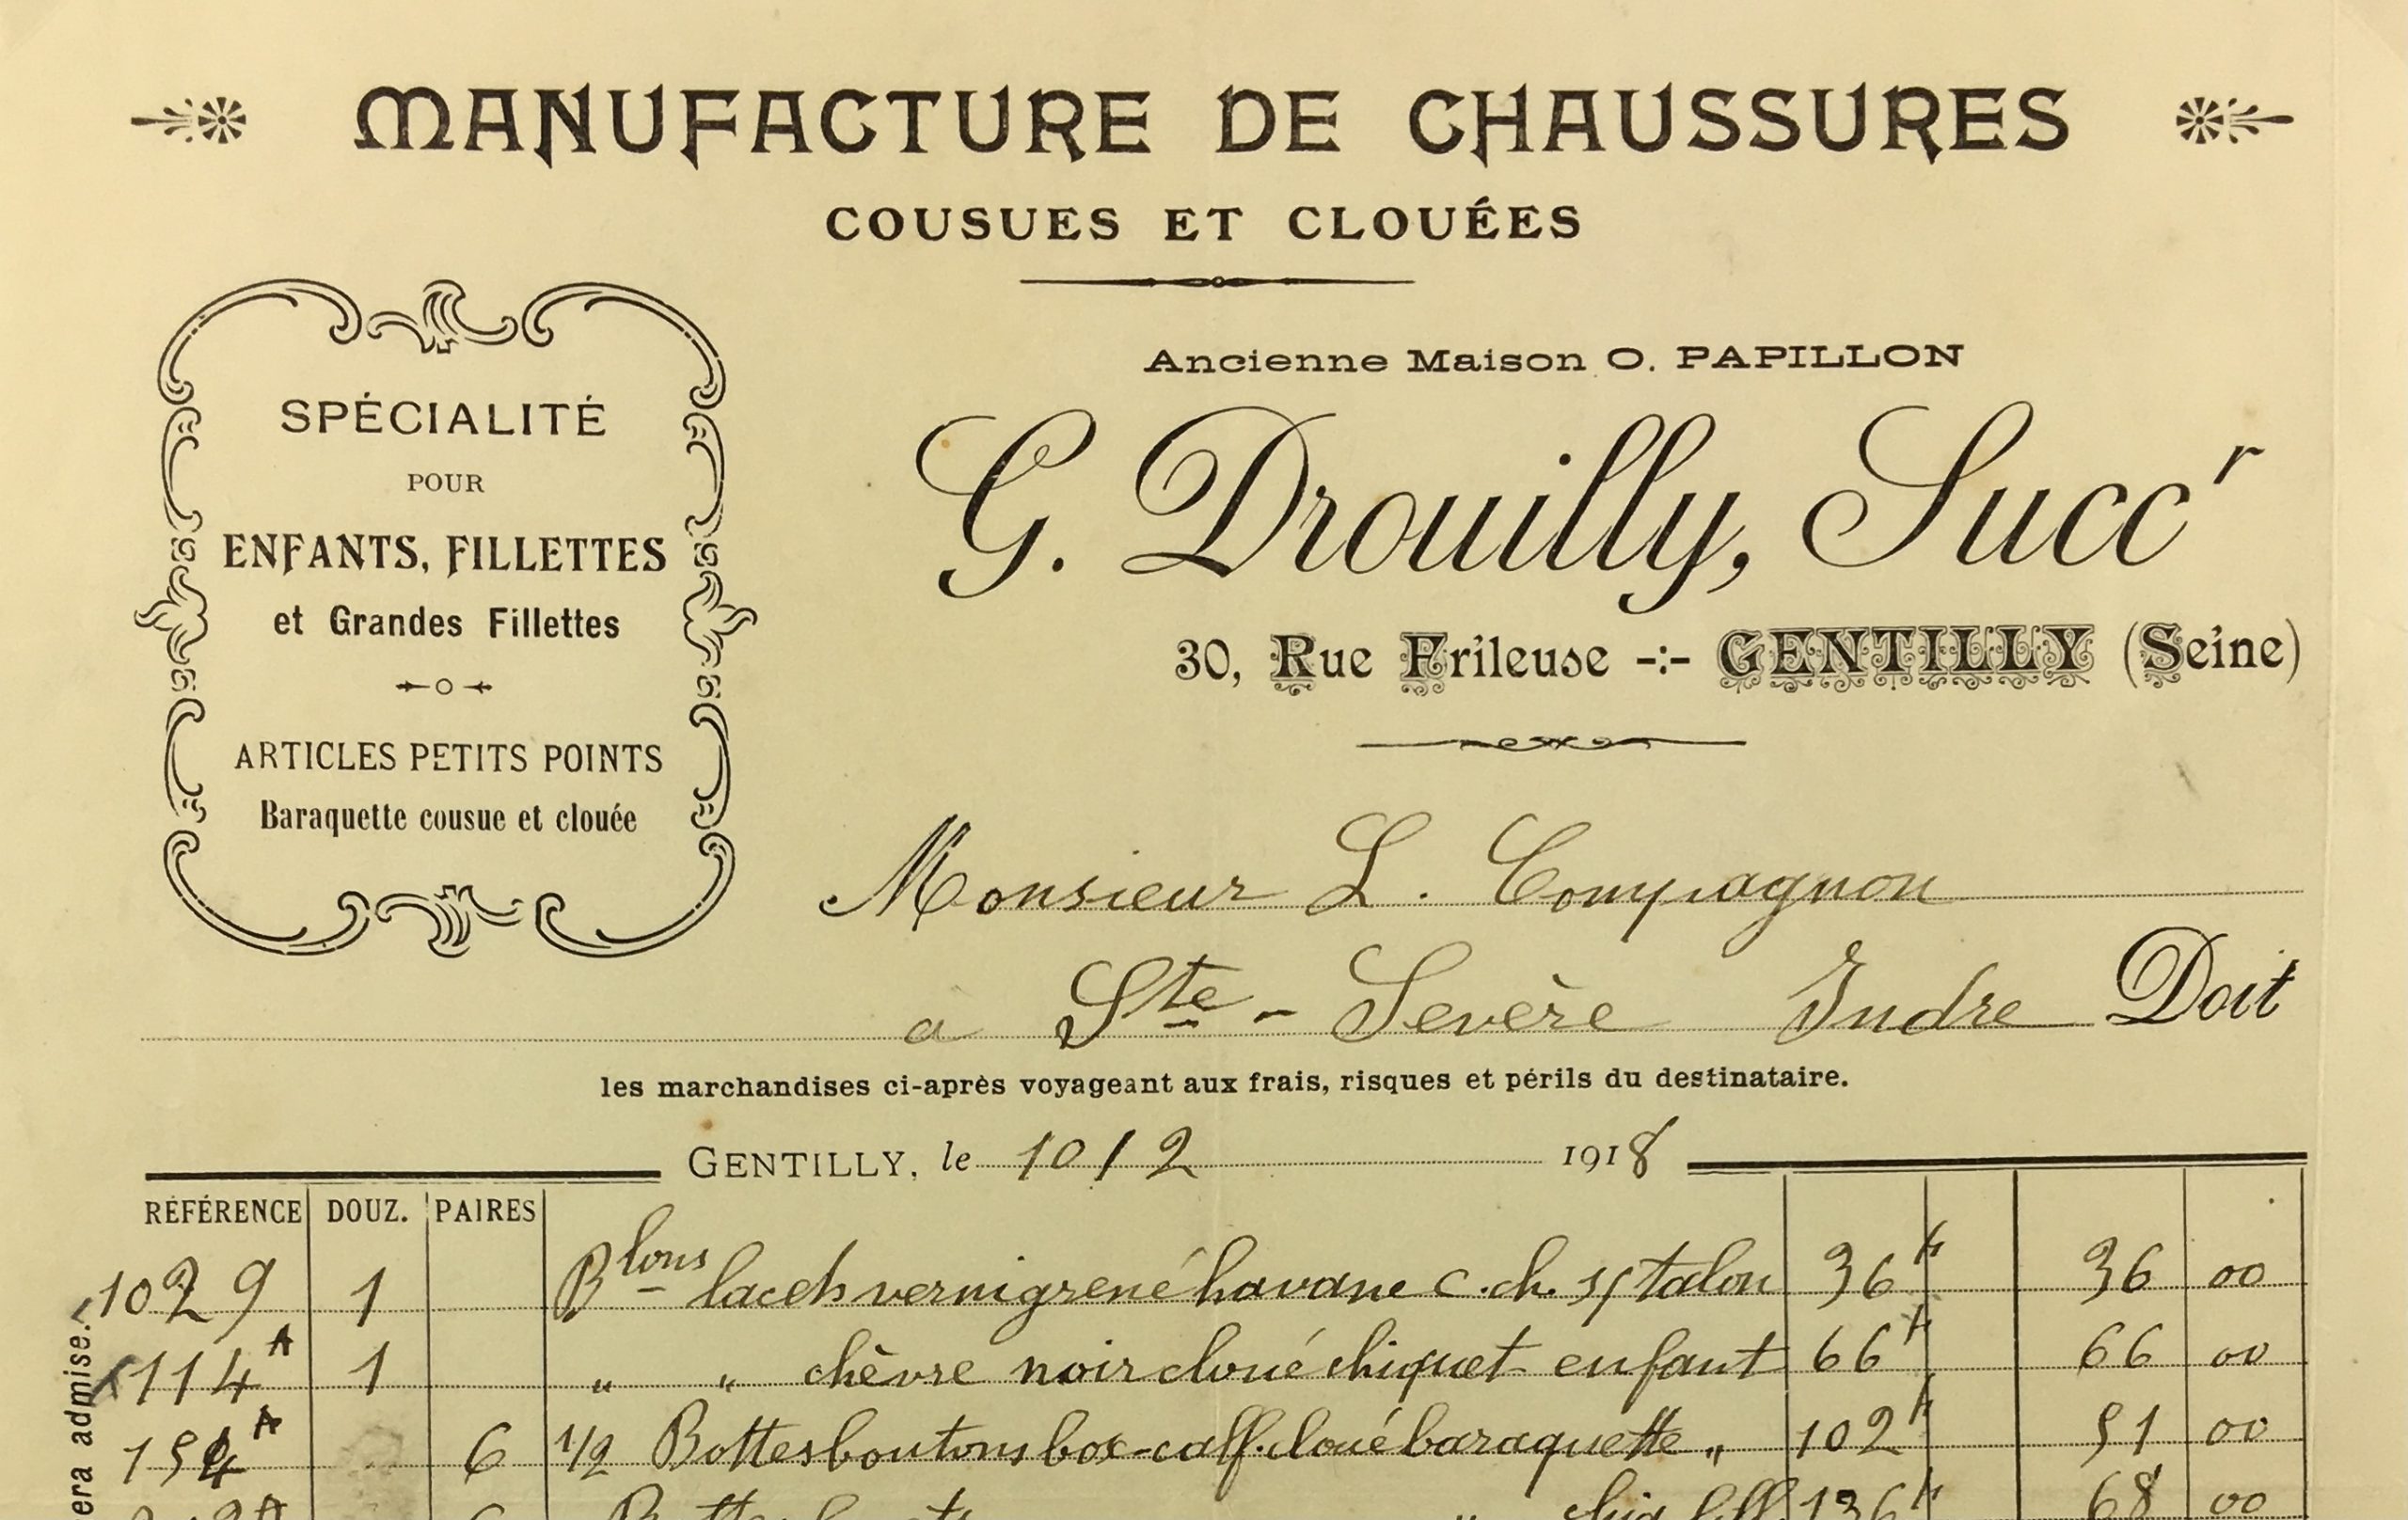 MANUFACTURE DE CHAUSSURES
COUSUES ET CLOUÉES
SPÉCIALITÉ
POUR
ENFANTS, FILLETTES
et Grandes Fillettes
ARTICLES PETITS POINTS
Baraquette cousue et clouée
Ancienne Maison O. PAPILLON
G. Drouilly, Succr
30, Rue Frileuse -:- GENTILLY (Seine)
Monsieur L. Compagnon
à Ste - Sevère Indre Doit
les marchandises ci-après voyageant aux frais, risques et périls du destinataire.
GENTILLY, le 10/2 1918
RÉFÉRENCE DOUZ. PAIRES
1029 1 Blons lacets verni grené havane c.ch. s/talon 36 f 36 00
114 A 1 " " chèvre noir cloué chiquet enfant 66 f 66 00
154 A 6 1/2 Bottes boutons box-calf. cloué baraquette " 102 f 51 00
136 f 68 00
era admise.